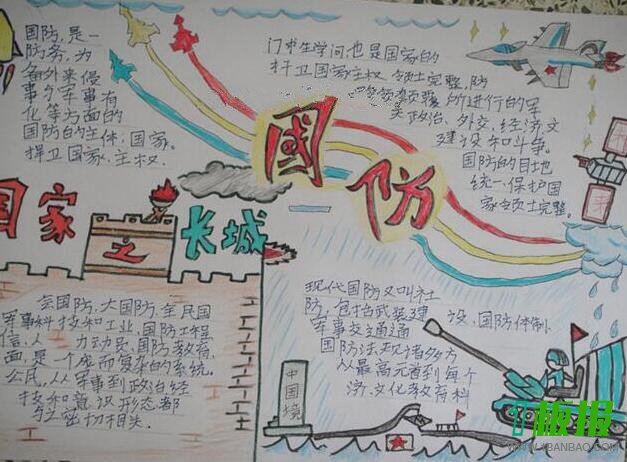 国防,是一
防务,为
备外来侵
事方军事有
化等方面的
国防的主体,国家。
捍卫国家、主权.
门求生学问,也是国家的
捍卫国家主权、领土完整,防
所进行的军
政治、外交,经济,文
建设和斗争。
国防的目地
统一保护国
家领土完整。
國防
国家之长城
全国防,大国防,全民国
军事科技和工业,国防工程
信,人 力动员、国防教育,
面,是一个 而复杂的系统。
公民,从军事到政治经
技和意识形态都
与之密切相关.
现代国防又叫社
防,包括武装建 设,国防体制
军事交通通
国防法规诸多方
从最高元首到每个
济,文化教育科
中国境
板报
WWW.1BANBAO.COM